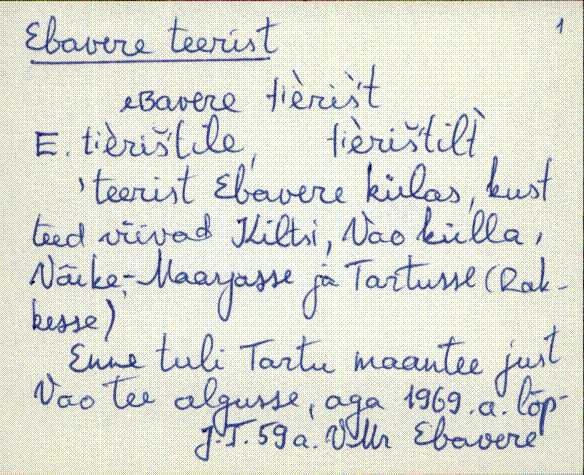 Ebavere teerist 1
eBavere tièriš't
E. tièriš'tile, tièriš'tilt
'teerist Ebavere külas, kust
teed viivad Kiltsi, Vao külla,
Väike-Maarjasse ja Tartusse (Rak-
kesse)
Enne tuli Tartu maantee just
Vao tee algusse, aga 1969.a. lõp-
J.T. 59 a. VMr Ebavere